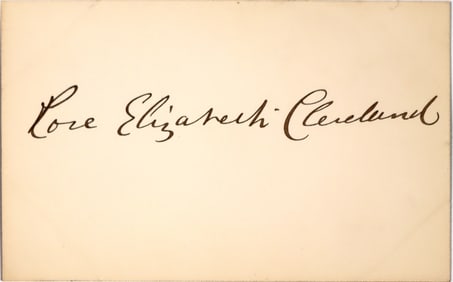 Rose Elizabeth Cleveland